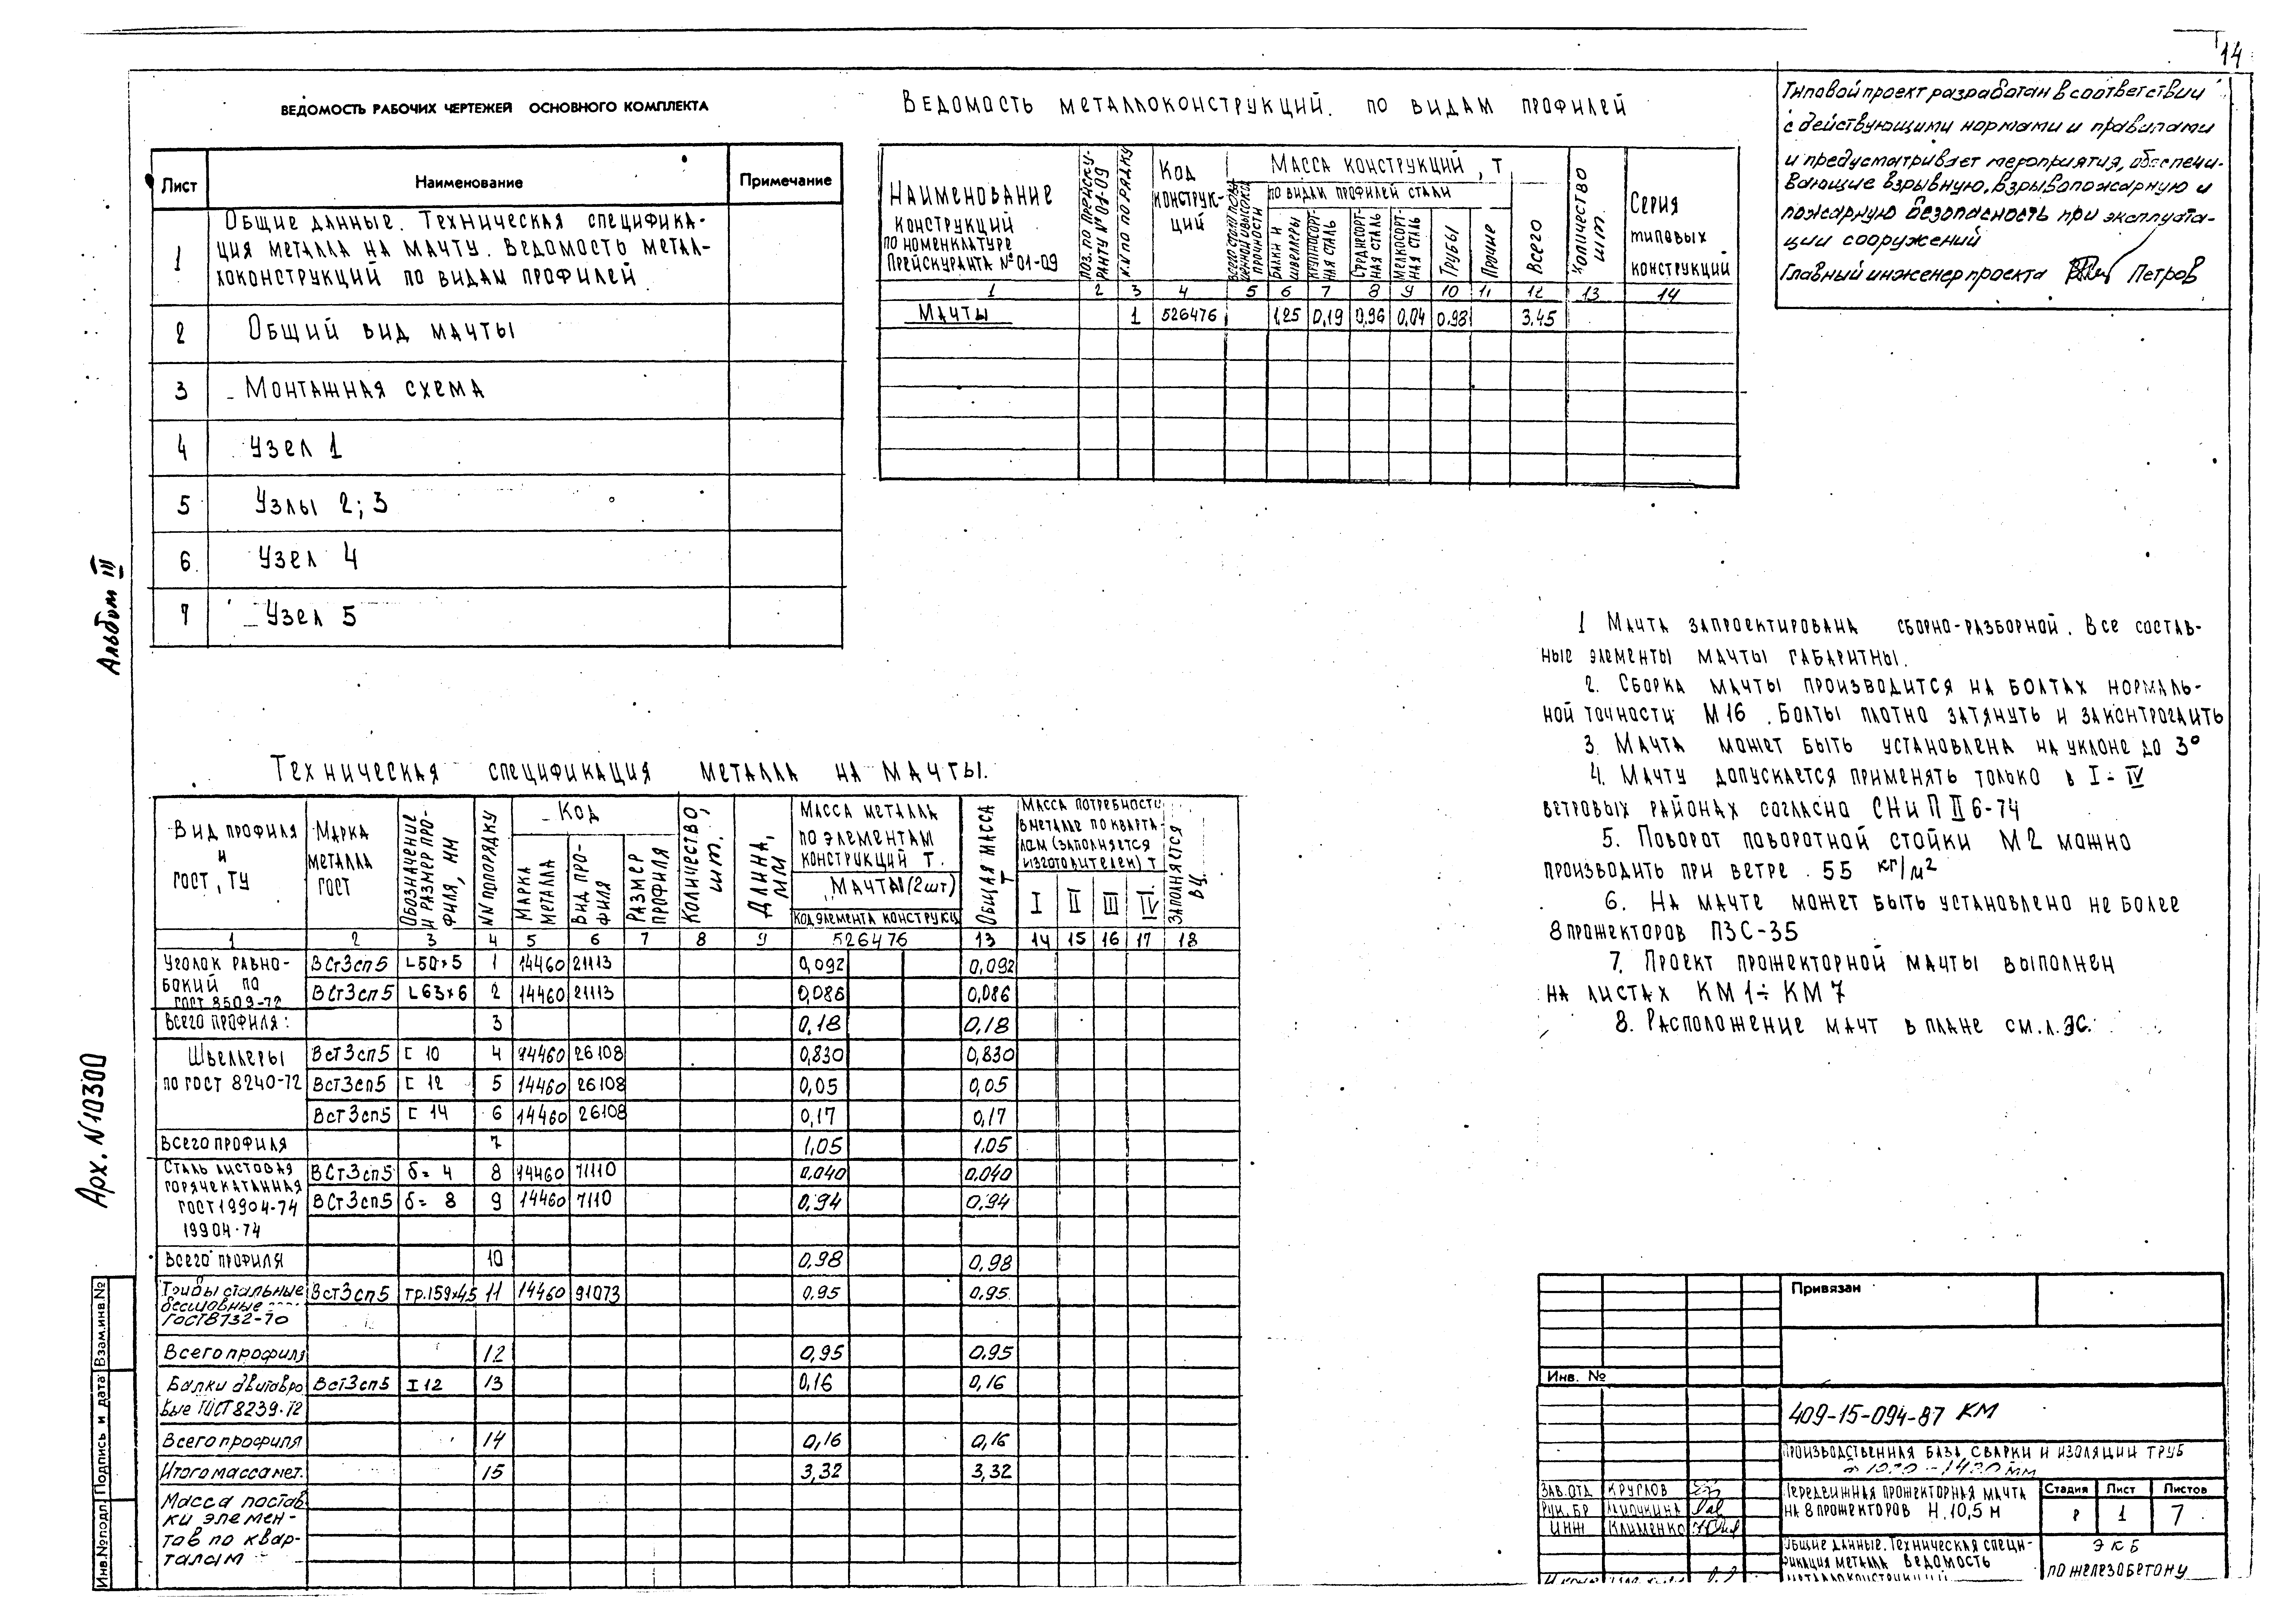 14
ВЕДОМОСТЬ РАБОЧИХ ЧЕРТЕЖЕЙ ОСНОВНОГО КОМПЛЕКТА
Лист Наименование Примечание
1 Общие данные. Техническая специфика-
ция металла на мачту. Ведомость метал-
локонструкций по видам профилей
2 Общий вид мачты
3 Монтажная схема
4 Узел 1
5 Узлы 2; 3
6 Узел 4
7 Узел 5
Ведомость металлоконструкций. по видам профилей
Наименование
конструкций
по номенклатуре
Прейскуранта № 01-09
Поз. по прейску-
ранту № 01-09
NN по порядку
Код
конструк-
ций
Масса конструкций, т
по видам профилей стали
Балки и
швеллеры
Крупносорт-
ная сталь
Среднесорт-
ная сталь
Мелкосорт-
ная сталь
Трубы
Прочие
Всего
Количество
шт.
Серия
типовых
конструкций
1 2 3 4 5 6 7 8 9 10 11 12 13 14
Мачты 1 526476 1,25 0,19 0,96 0,04 0,98 3.45
Типовой проект разработан в соответствии
с действующими нормами и правилами
и предусматривает мероприятия, обеспечи-
вающие взрывную, взрывопожарную и
пожарную безопасность при эксплуата-
ции сооружений
Главный инженер проекта Петров
1 Мачта запроектирована сборно-разборной. Все состав-
ные элементы мачты габаритны.
2. Сборка мачты производится на болтах нормаль-
ной точности М16. Болты плотно затянуть и законтрогаить
3. Мачта может быть установлена на уклоне до 3°
4. Мачту допускается применять только в I÷IV
ветровых районах согласно СНиП II 6-74
5. Поворот поворотной стойки М2 можно
производить при ветре 55 кг/м²
6. На мачте может быть установлено не более
8 прожекторов ПЗС-35
7. Проект прожекторной мачты выполнен
на листах КМ1÷КМ7
8. Расположение мачт в плане см. л. ЭС.
Техническая спецификация металла на мачты.
Вид профиля
и
ГОСТ, ТУ
Марка
металла
ГОСТ
Обозначение
и размер про-
филя, мм
NN по порядку
Код
Марка
металла
Вид про-
филя
Размер
профиля
Количество,
шт.
Длина,
мм
Масса металла
по элементам
конструкций т.
Мачты (2шт)
Код элемента конструкц
Общая масса
т
Масса потребности
в металле по кварта-
лам (заполняется
изготовителем) т
I II III IV
Заполняется
ВЦ
1 2 3 4 5 6 7 8 9 526476 13 14 15 16 17 18
Уголок равно-
бокий по
ГОСТ 8509-72
ВСт3сп5 L50×5 1 14460 21113 0,092 0,092
ВСт3сп5 L63×6 2 14460 21113 0,086 0,086
Всего профиля: 3 0,18 0,18
Швеллеры
по ГОСТ 8240-72
ВСт3сп5 [ 10 4 14460 26108 0,830 0,830
ВСт3сп5 [ 12 5 14460 26108 0,05 0,05
ВСт3сп5 [ 14 6 14460 26108 0,17 0,17
Всего профиля 7 1,05 1.05
Сталь листовая
горячекатанная
ГОСТ 19904-74
19904-74
ВСт3сп5 δ= 4 8 14460 71110 0.040 0.040
ВСт3сп5 δ= 8 9 14460 7110 0,94 0,94
Всего профиля 10 0,98 0,98
Трубы стальные
бесшовные
ГОСТ 8732-70
ВСт3сп5 тр.159×4,5 11 14460 91073 0.95 0.95
Всего профиля 12 0,95 0.95
Балки двутавро
вые ГОСТ 8239-72
ВСт3сп5 I 12 13 0,16 0,16
Всего профиля 14 0,16 0,16
Итого масса мет. 15 3,32 3,32
Масса постав
ки элемен-
тов по квар-
талам
Альбом III
Арх. N 10300
Взам.инв.№
Подпись и дата
Инв.№подл.
Привязан
Инв. №
409-15-094-87 КМ
Производственная база сварки и изоляции труб
Зав.отд. Круглов
Рук.бр
Инж Клименко
Передвижная прожекторная мачта
на 8 прожекторов Н. 10,5 м
Стадия Лист Листов
Р 1 7
Общие данные. Техническая специ-
фикация металла Ведомость
металлоконструкций
ЭКБ
по железобетону